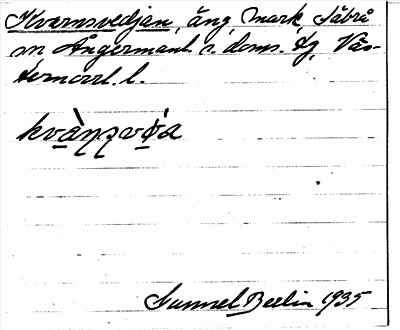 Kvarnsvedjan, äng mark, Säbrå
sn Ångermanl. s. doms. tg, Väs-
ternorrl. l.
kvàṇṣvǿa
Gunnel Berlin 1935